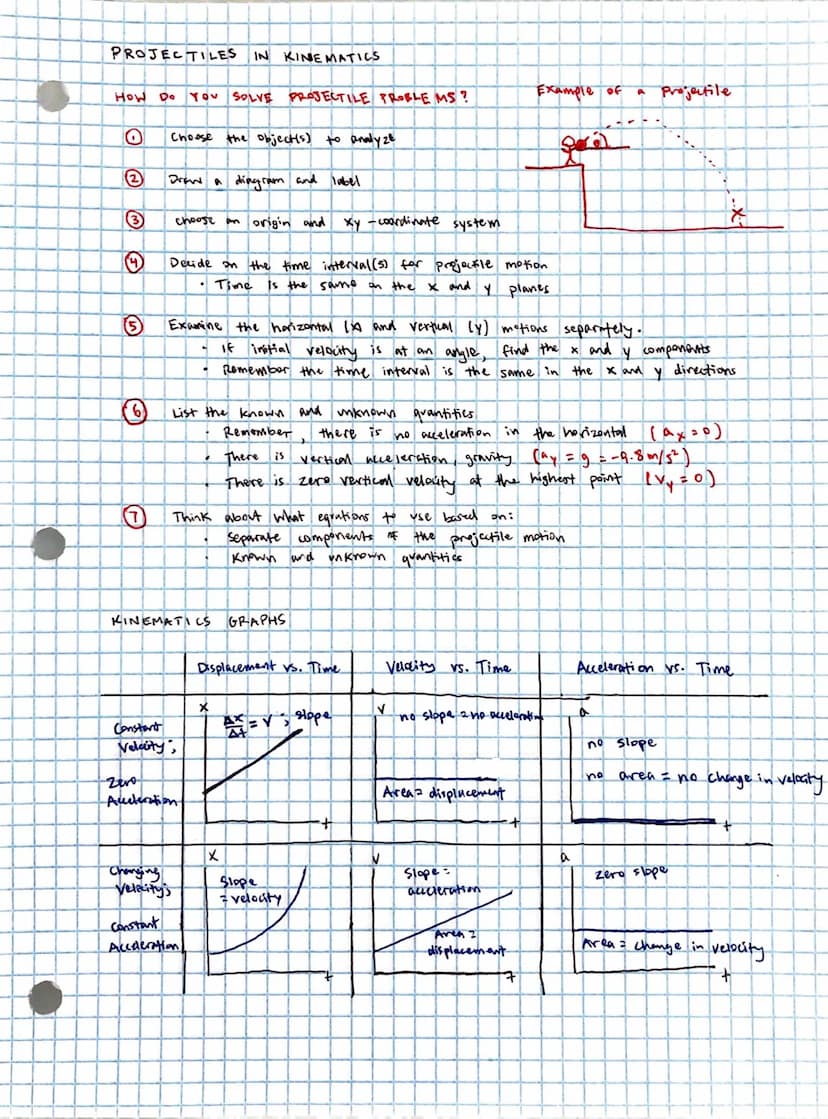 PROJECTILES IN KINEMATICS
HOW DO YOU SOLVE PROJECTILE PROBLEMS?
Example of a Projectile
1 Choose the object(s) to analyze
2 Draw a diagram and label
3 Choose an origin and xy-coordinate system
4 Decide on the time interval(s) for projectile motion
• Time is the same on the x and y planes
5 Examine the horizontal (x) and vertical (y) motions separately.
• If initial velocity is at an angle, find the x and y components
• Remember the time interval is the same in the x and y directions
6 List the known and unknown quantities
• Remember, there is no acceleration in the horizontal (ax=0)
• There is vertical acceleration, gravity (ay = g = -9.8m/s²)
• There is zero vertical velocity at the highest point (Vy = 0)
7 Think about what equations to use based on:
• Separate components of the projectile motion
• Known and unknown quantities
KINEMATICS GRAPHS
Displacement vs. Time
Velocity vs. Time
Acceleration vs. Time
Constant
Velocity;
Zero
Acceleration
x
Δx/Δt = v ; slope
t
v
no slope = no acceleration
Area = displacement
t
a
no slope
no area = no change in velocity
t
Changing
Velocity;
Constant
Acceleration
x
Slope
= velocity
t
v
Slope =
acceleration
Area =
displacement
t
a
zero slope
Area = change in velocity
t